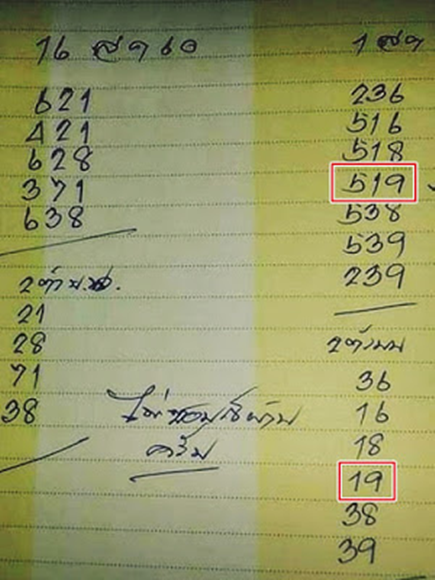 16 ส.ค 60
621
421
628
371
638
2ตัว บน.
21
28
71
38
ไม่ชอบให้ผ่าน
ครับ
1 ส.ค
236
516
518
519
538
539
239
2ตัวบน
36
16
18
19
38
39